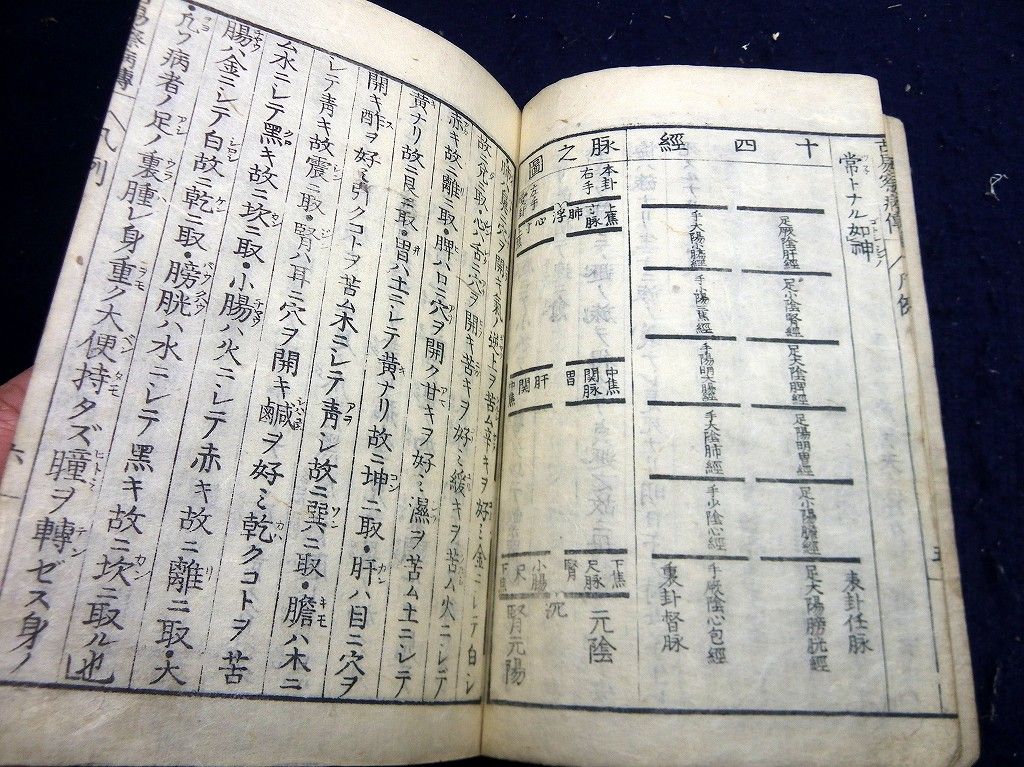 常トナル如神
十四經
表卦任脉
足厥陰肝經
足小陰腎經
足太陰脾經
足陽明胃經
足小陽膽經
足太陽膀胱經
手太陽小膓經
手小陽三焦經
手陽明大膓經
手太陰肺經
手少陰心經
手厥陰心包經
裏卦督脉
脉之圖
本卦
右手
上焦
肺
浮
中焦
關脉
胃
下焦
尺脉
腎
元陰
左手
心
肝
關
中焦
小腸
尺
下焦
沉
腎元陽
故ニ兌ニ取・心ハ舌ニ穴ヲ開キ苦キヲ好ミ緩キヲ苦ム火ニシテ
赤キ故ニ離ニ取・脾ハ口ニ穴ヲ開ク甘キヲ好ミ濕ヲ苦ム土ニシテ
黄ナリ故ニ艮ニ取・胃ハ土ニシテ黄ナリ故ニ坤ニ取・肝ハ目ニ穴ヲ
開キ酢ヲ好ミ引クコトヲ苦ム木ニシテ靑シ故ニ巽ニ取・膽ハ木ニ
シテ青キ故震ニ取・腎ハ耳ニ穴ヲ開キ鹹ヲ好ミ乾クコトヲ苦
ム水ニシテ黑キ故ニ坎ニ取・小腸ハ火ニシテ赤キ故ニ離ニ取・大
腸ハ金ニシテ白故ニ乾ニ取・膀胱ハ水ニシテ黑キ故ニ坎ニ取ル也
・凢ソ病者ノ足ノ裏腫レ身重ク大便持タズ瞳ヲ轉ゼス身ノ
察病傳
凡例
六